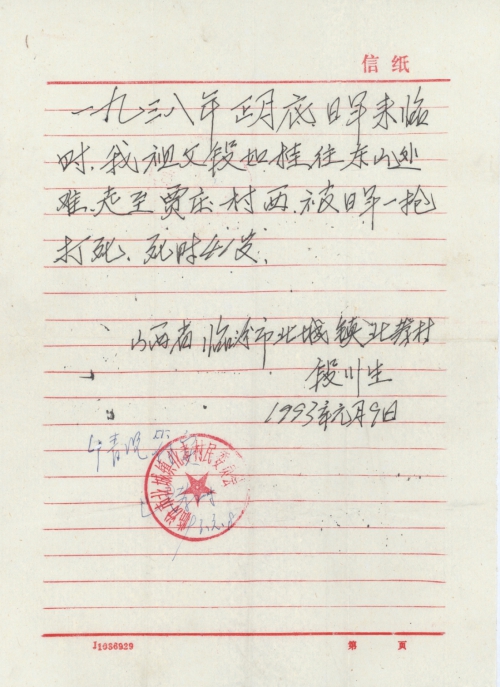 信纸
一九三八年正月底，日军来临
时，我祖父段如挂往东山处
难，走至贾庄一村西，被日军一抢
打死，死时41岁，
山西省临汾市北城镇北孝村
段川生
1993年元月9日
J1056929
第 页